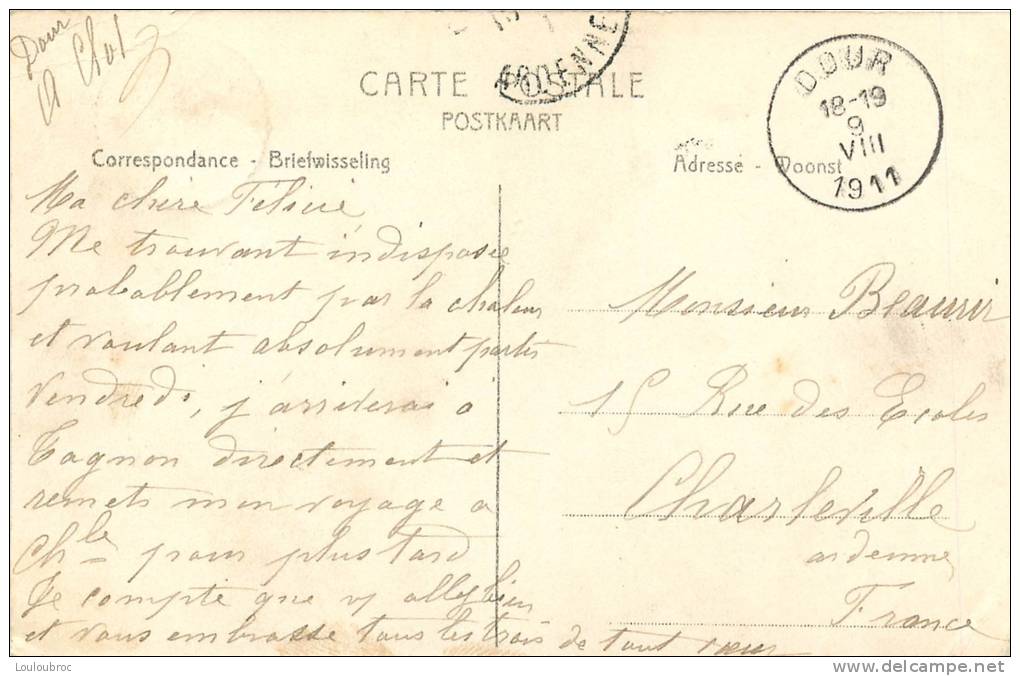 Dour
CARTE POSTALE
POSTKAART
DOUR
18-19
9
VIII
1911
Correspondance - Briefwisseling
Adresse - Woonst
Ma chère Félicie
Me trouvant indisposée
probablement par la chaleur
et voulant absolument partir
vendredi, j'arriverai à
Tagnon directement et
remets mon voyage à
Chle pour plus tard
Je compte que vs allez bien
et vous embrasse tous les trois de tout cœur
Monsieur Beauvir
15 Rue des Ecoles
Charleville
ardennes
France
Louloubroc
delcampe.net